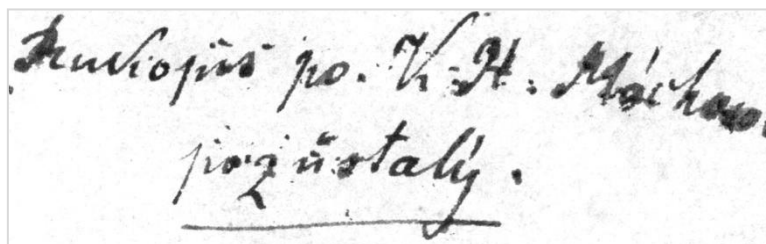 Rukopis po. K. H. Máchow
pozůstalý.